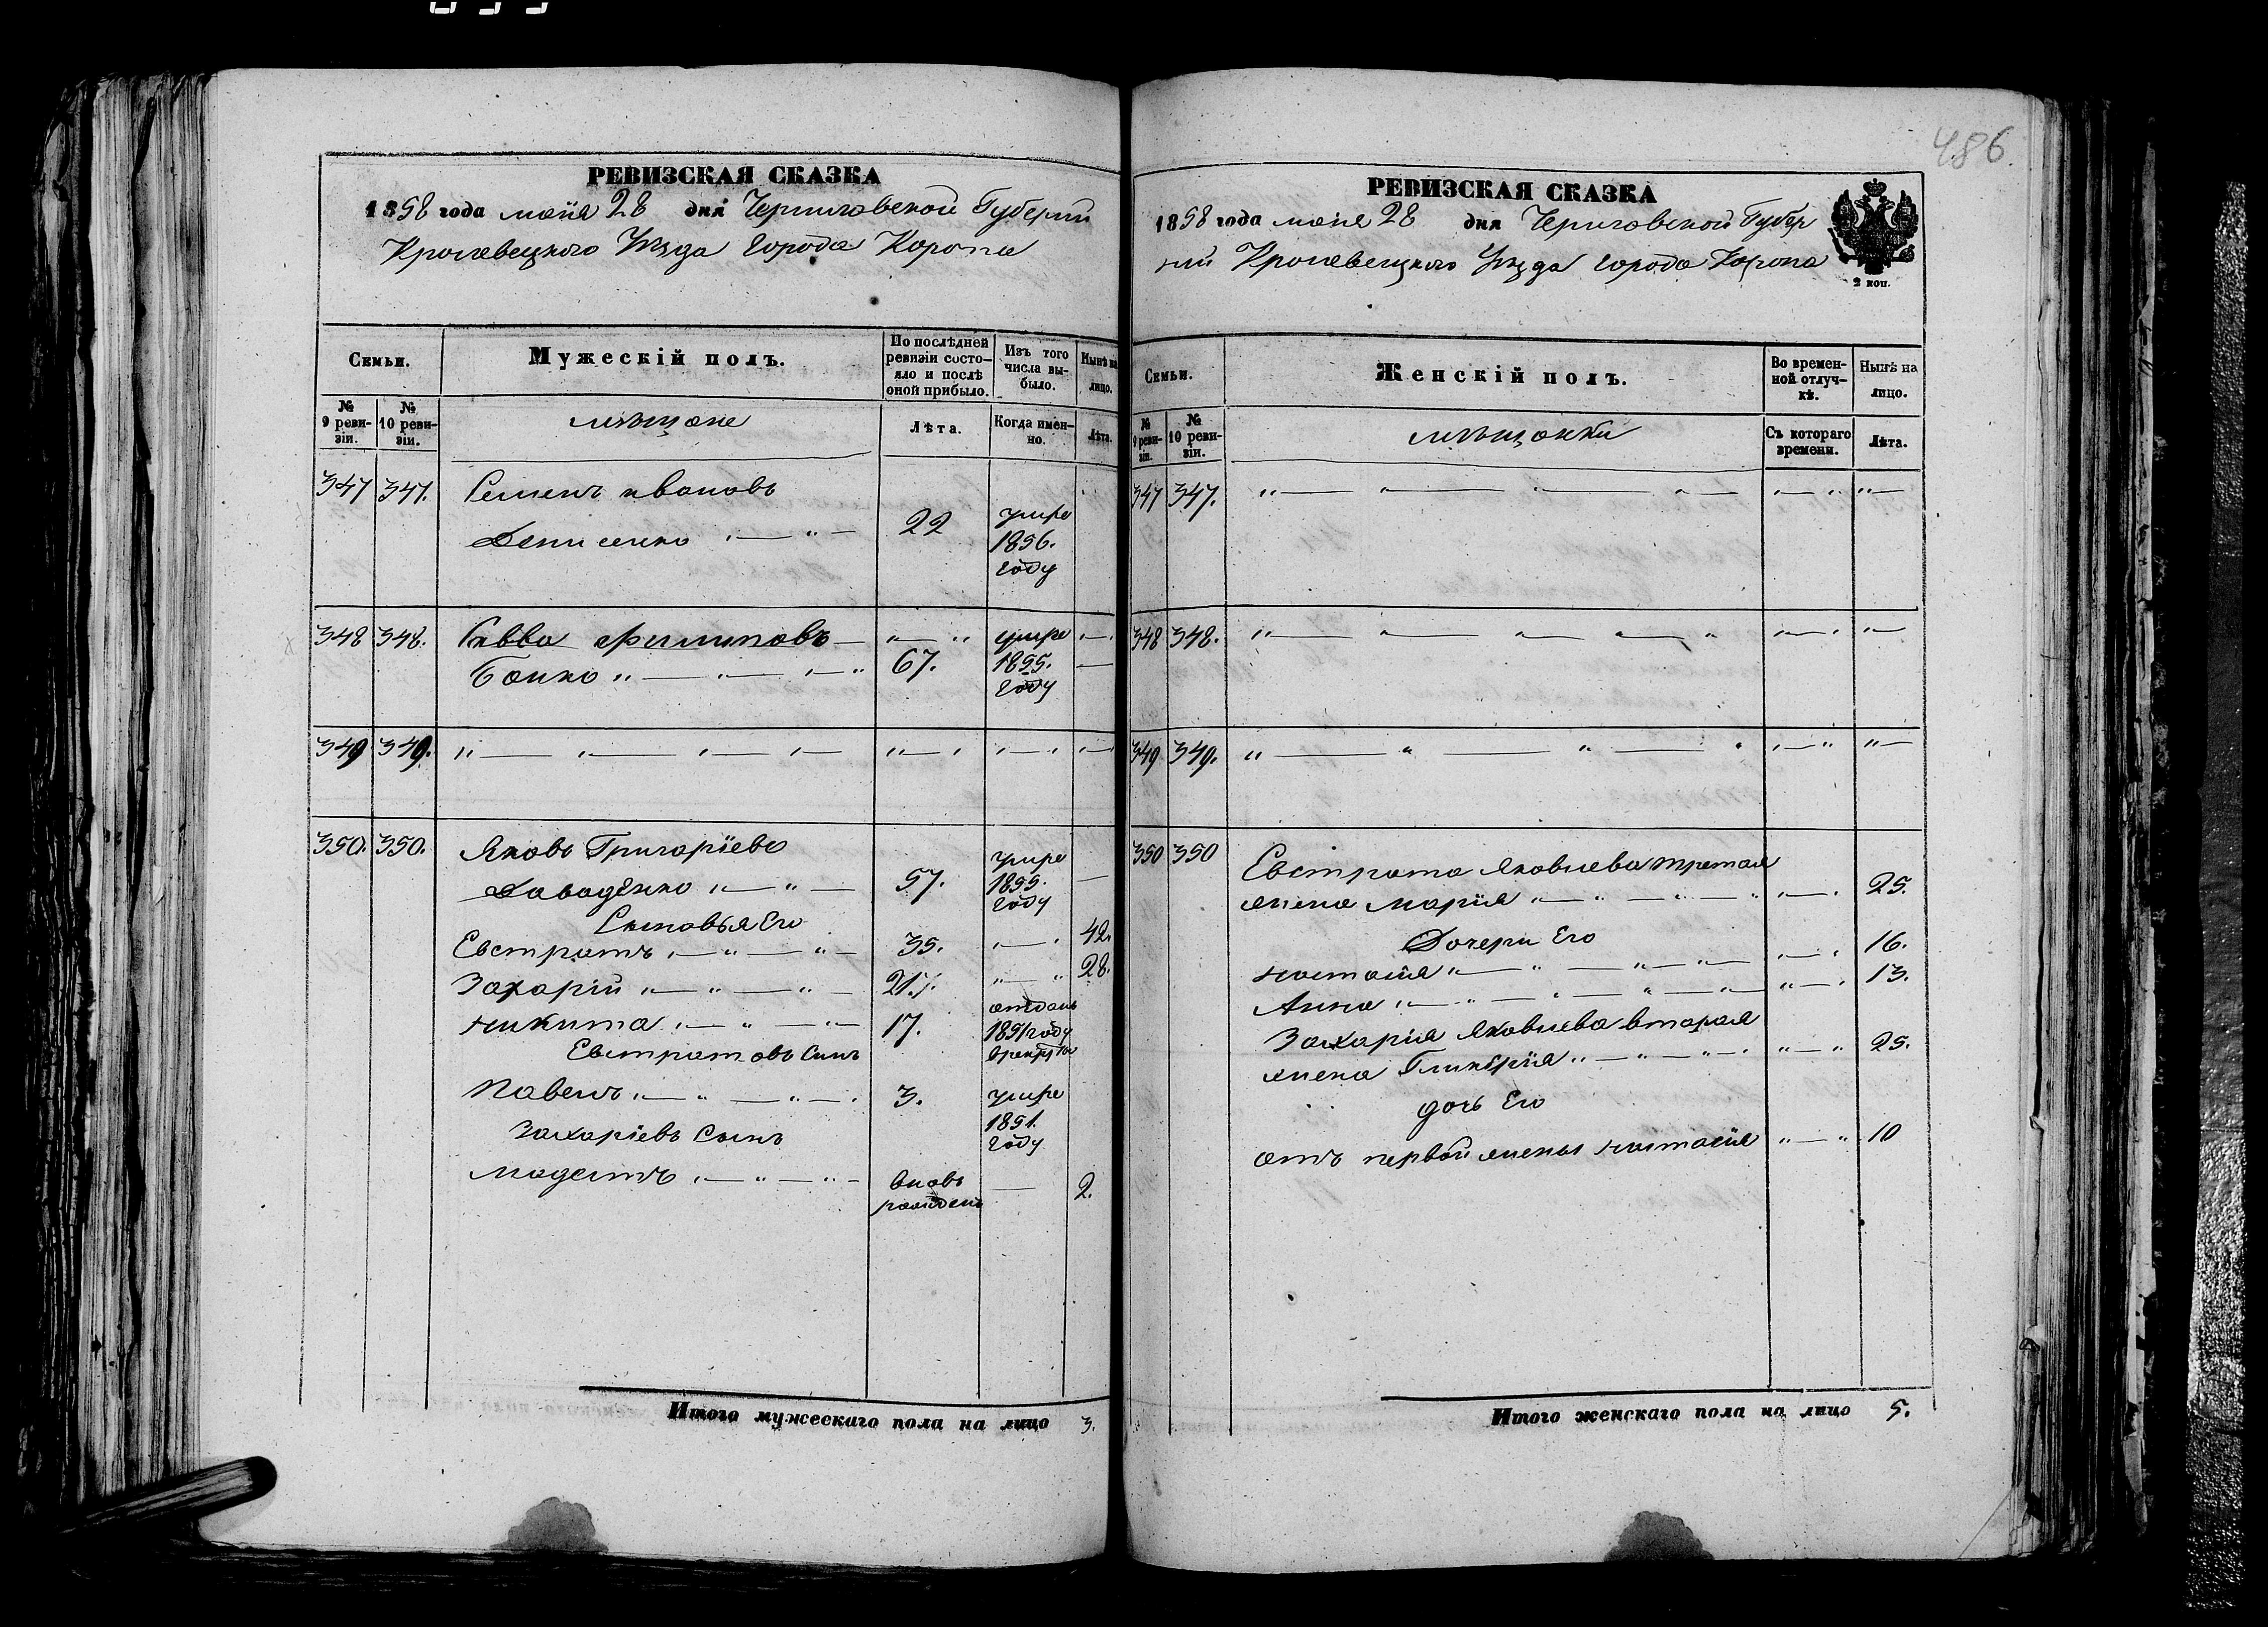 486.
РЕВИЗСКАЯ СКАЗКА
1858 года маія 28 дня Черниговской Губерніи
Кролевецкого Уѣзда города Коропа
Семьи.
Мужескій полъ.
По послѣдней ревизіи состо-
яло и послѣ оной прибыло.
Изъ того числа вы-
было.
Нынѣ на лицо.
№ 9 реви-
зіи.
№ 10 реви-
зіи.
мѣщане
Лѣта.
Когда имен-
но.
Лѣта.
347 347. Семенъ Ивановъ
Денисенко 22 умре 1856. году
348 348. Савва Филиповъ
Бойко 67. умре 1855. году
349 349.
350. 350. Яковъ Григоріевъ
Давиденко 57. умре 1855. году
Сыновья Его
Евстратъ 35. 42.
Захарій 21. 28.
Никита 17. отданъ 1851 году
Евстратовъ Сынъ
Павелъ 3. умре 1851. году
Захаріевъ Сынъ
Модестъ вновь рожденъ 2.
Итого мужескаго пола на лицо 3.
РЕВИЗСКАЯ СКАЗКА
1858 года маія 28 дня Черниговской Губер
ніи Кролевецкого Уѣзда города Коропа
2 коп.
Семьи.
Женскій полъ.
Во времен-
ной отлуч-
кѣ.
Нынѣ на лицо.
№ 9 реви-
зіи.
№ 10 реви-
зіи.
мѣщанки
Съ котораго времени.
Лѣта.
347 347.
348 348.
349 349.
350 350 Евстрата Яковлева третая
жена Марія 25.
Дочери Его
Настасія 16.
Анна 13.
Захарія Яковлева вторая
жена Гликерія 25.
дочь Его
отъ первой жены Настасія 10
Итого женскаго пола на лицо 5.